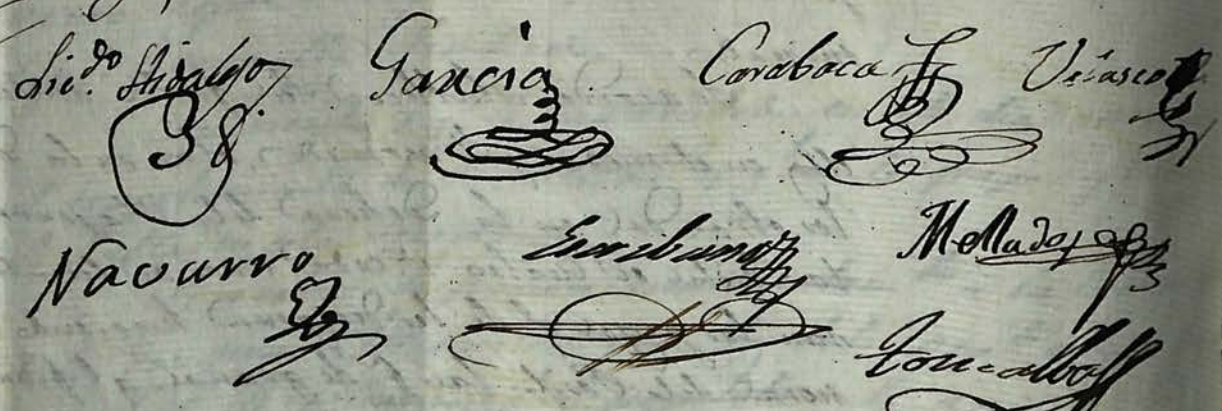 Lic.do Hidalgo Garcia Carabaca Velasco
Navarro Escribano Mellado